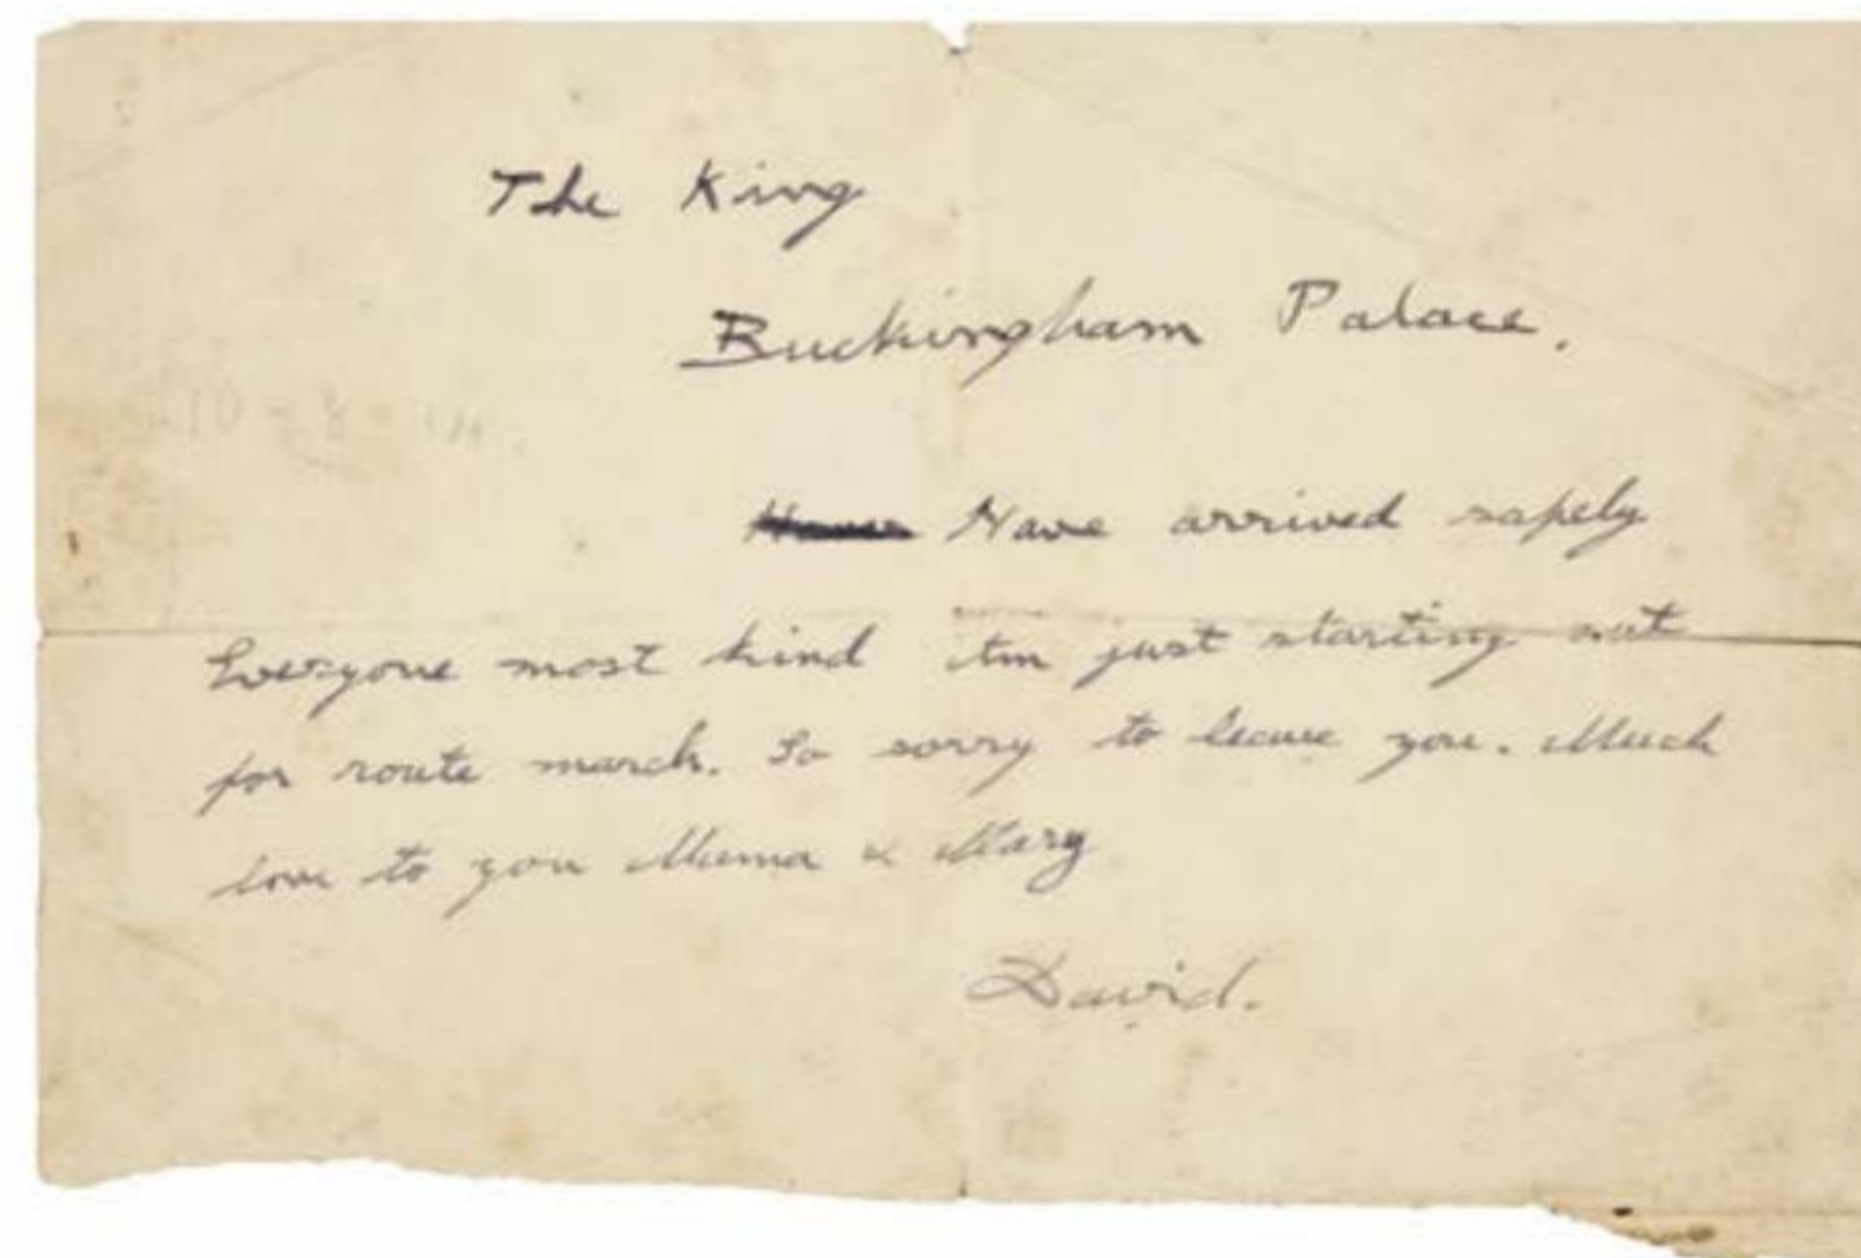 The King
Buckingham Palace.
10-8-14.
Have arrived safely
Everyone most kind Im just starting out
for route march. So sorry to leave you. Much
love to you Mama & Mary
David.